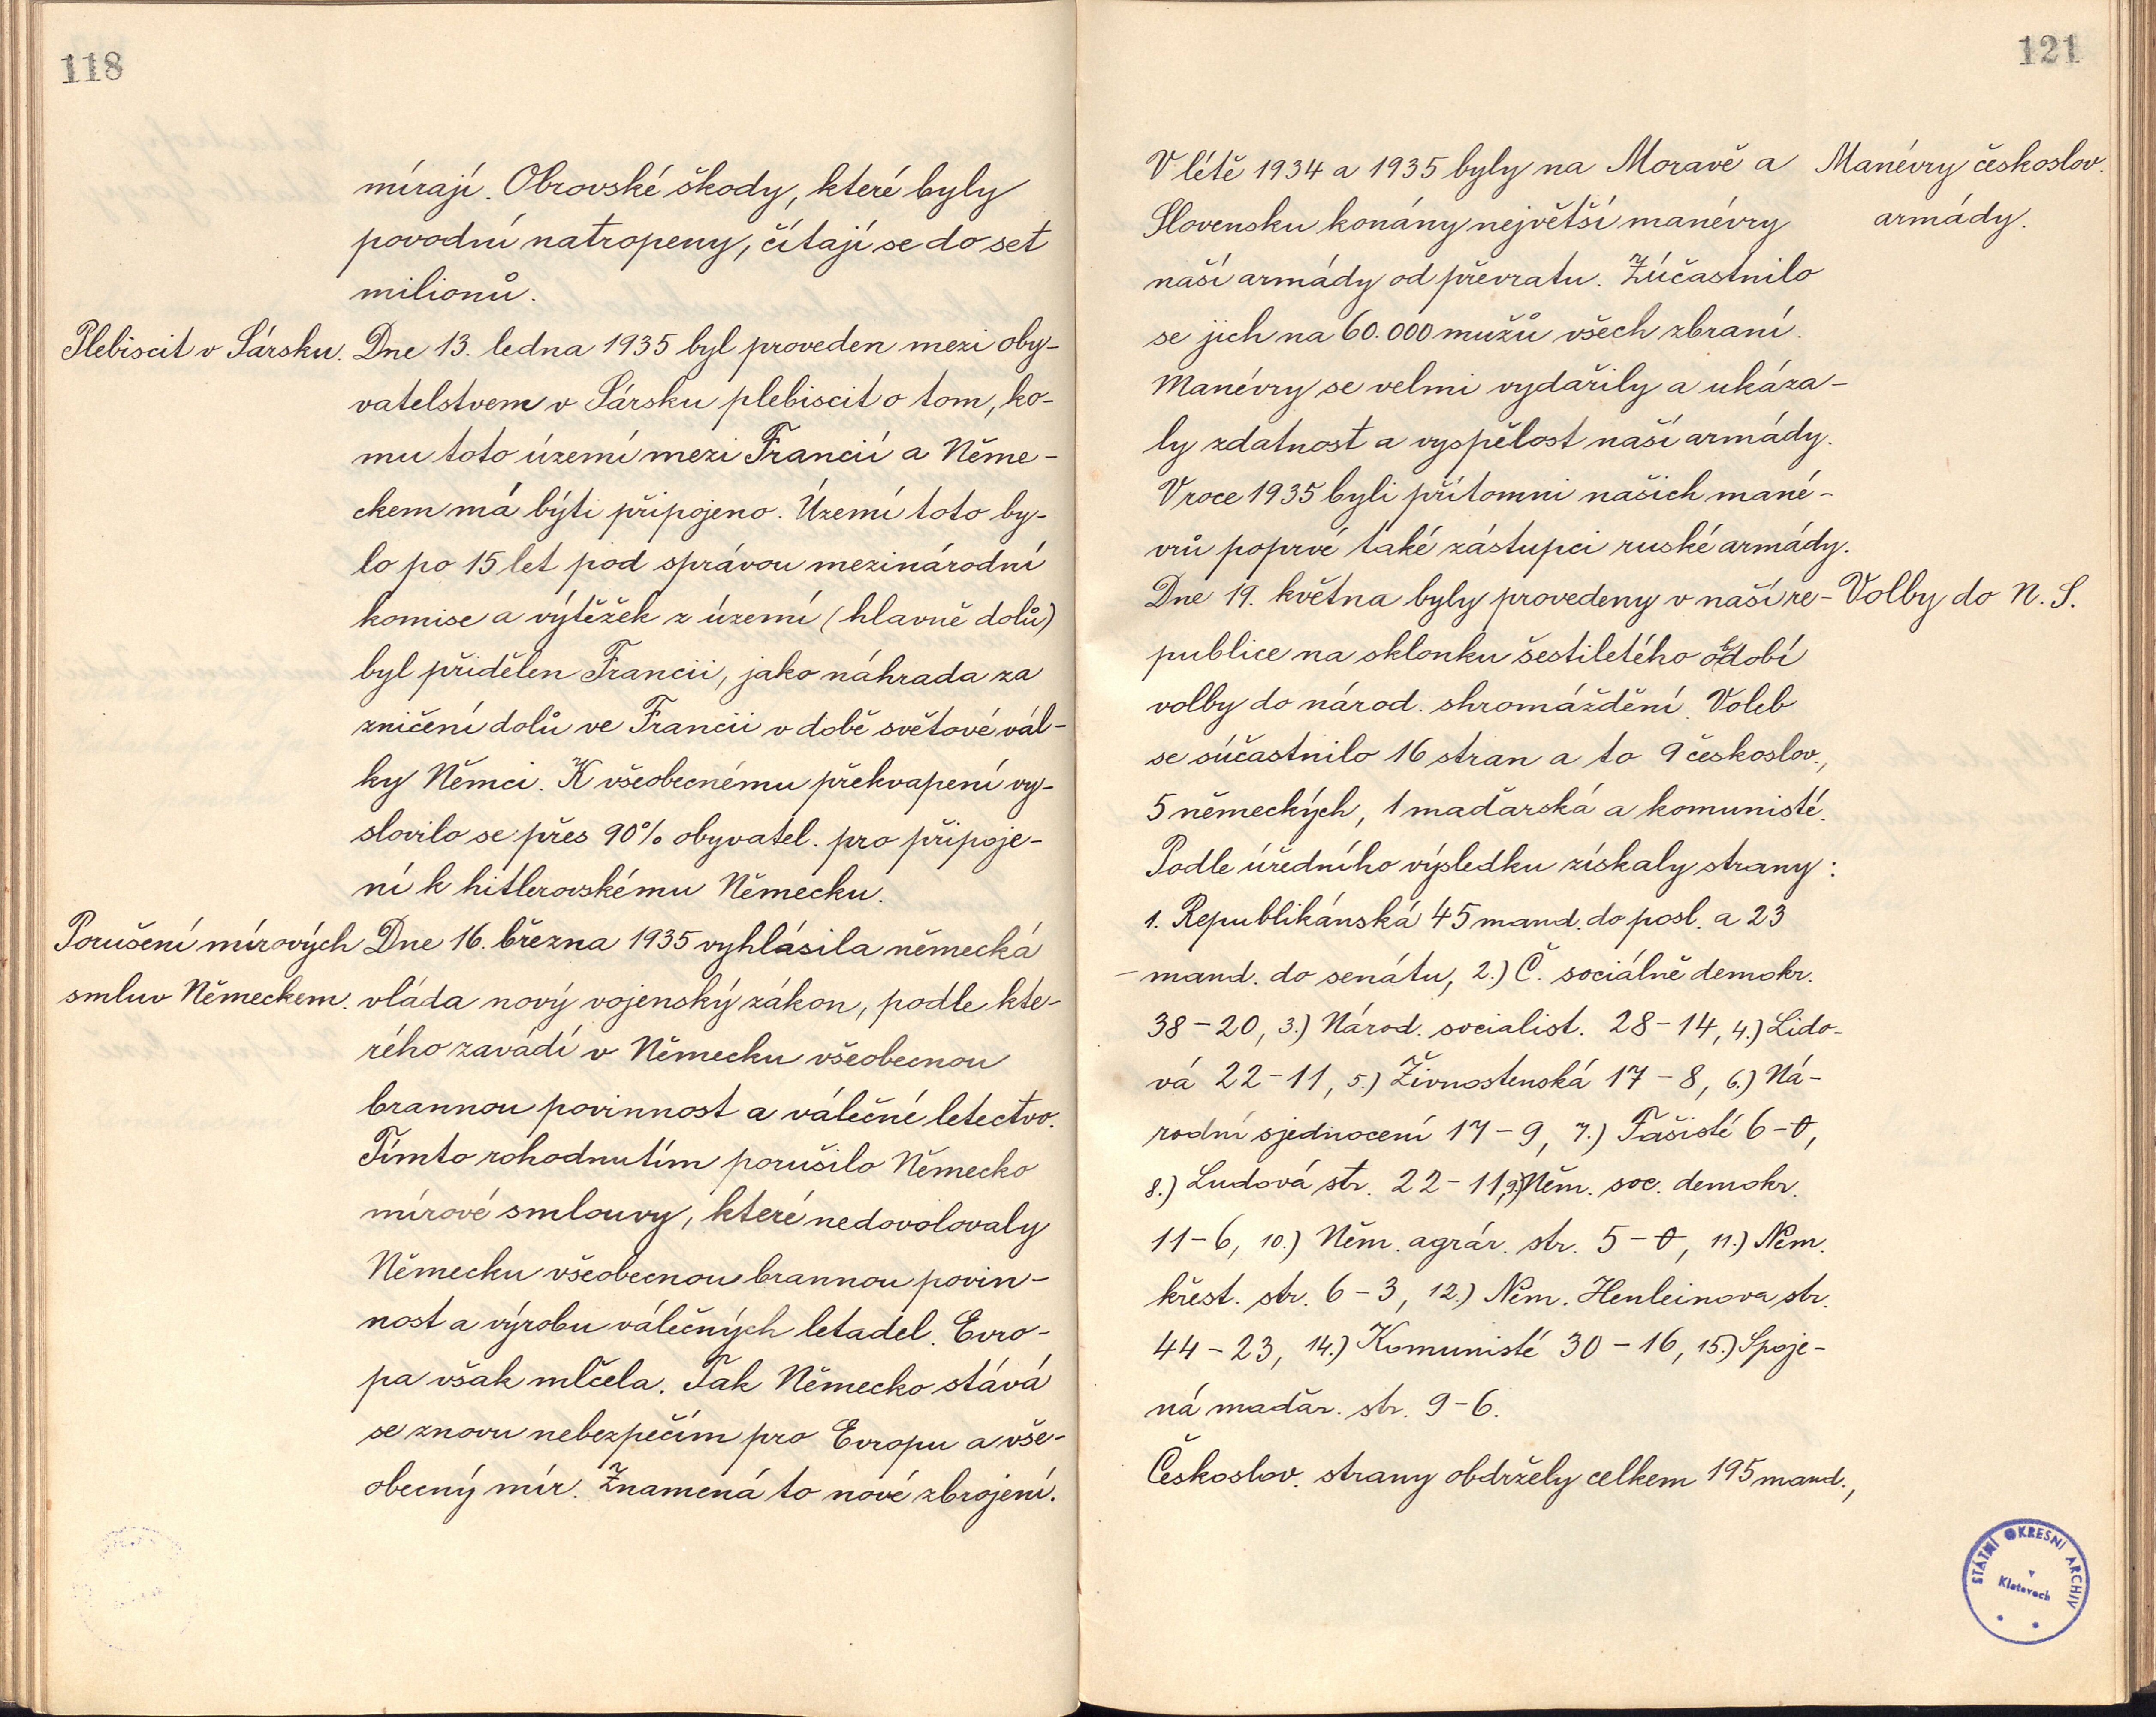 118
mírají. Obrovské škody, které byly
povodní natropeny, čítají se do set
milionů.
Plebiscit v Sársku. Dne 13. ledna 1935 byl proveden mezi oby-
vatelstvem v Sársku plebiscit o tom, ko-
mu toto území mezi Francií a Něme-
ckem má býti připojeno. Území toto by-
lo po 15 let pod správou mezinárodní
komise a výtěžek z území (hlavně dolů)
byl přidělen Francii, jako náhrada za
zničení dolů ve Francii v době světové vál-
ky Němci. K všeobecnému překvapení vy-
slovilo se přes 90% obyvatel. pro připoje-
ní k hitlerovskému Německu.
Porušení mírových Dne 16. března 1935 vyhlásila německá
smluv Německem. vláda nový vojenský zákon, podle kte-
rého zavádí v Německu všeobecnou
brannou povinnost a válečné letectvo.
Tímto rohodnutím porušilo Německo
mírové smlouvy, které nedovolovaly
Německu všeobecnou brannou povin-
nost a výrobu válečných letadel. Evro-
pa však mlčela. Tak Německo stává
se znovu nebezpečím pro Evropu a vše-
obecný mír. Znamená to nové zbrojení.
121
V létě 1934 a 1935 byly na Moravě a Manévry českoslov.
Slovensku konány největší manévry armády.
naší armády od převratu. Zúčastnilo
se jich na 60.000 mužů všech zbraní.
Manévry se velmi vydařily a ukáza-
ly zdatnost a vyspělost naší armády.
V roce 1935 byli přítomni našich mané-
vrů poprvé také zástupci ruské armády.
Dne 19. května byly provedeny v naší re- Volby do N. S.
publice na sklonku šestiletého období
volby do národ. shromáždění. Voleb
se súčastnilo 16 stran a to 9 českoslov.,
5 německých, 1 maďarská a komunisté.
Podle úředního výsledku získaly strany:
1. Republikánská 45 mand. do posl. a 23
- mand. do senátu, 2.) Č. sociálně demokr.
38-20, 3.) Národ. socialist. 28-14, 4.) Lido-
vá 22-11, 5.) Živnostenská 17-8, 6.) Ná-
rodní sjednocení 17-9, 7.) Fašisté 6-0,
8.) Ludová str. 22-11, 9.) Něm. soc. demokr.
11-6, 10.) Něm. agrár. str. 5-0, 11.) Něm.
křest. str. 6-3, 12.) Něm. Henleinova str.
44-23, 14.) Komunisté 30-16, 15.) Spoje-
ná maďar. str. 9-6.
Českoslov. strany obdržely celkem 195 mand.,
STÁTNÍ OKRESNÍ ARCHIV
v
Klatovech